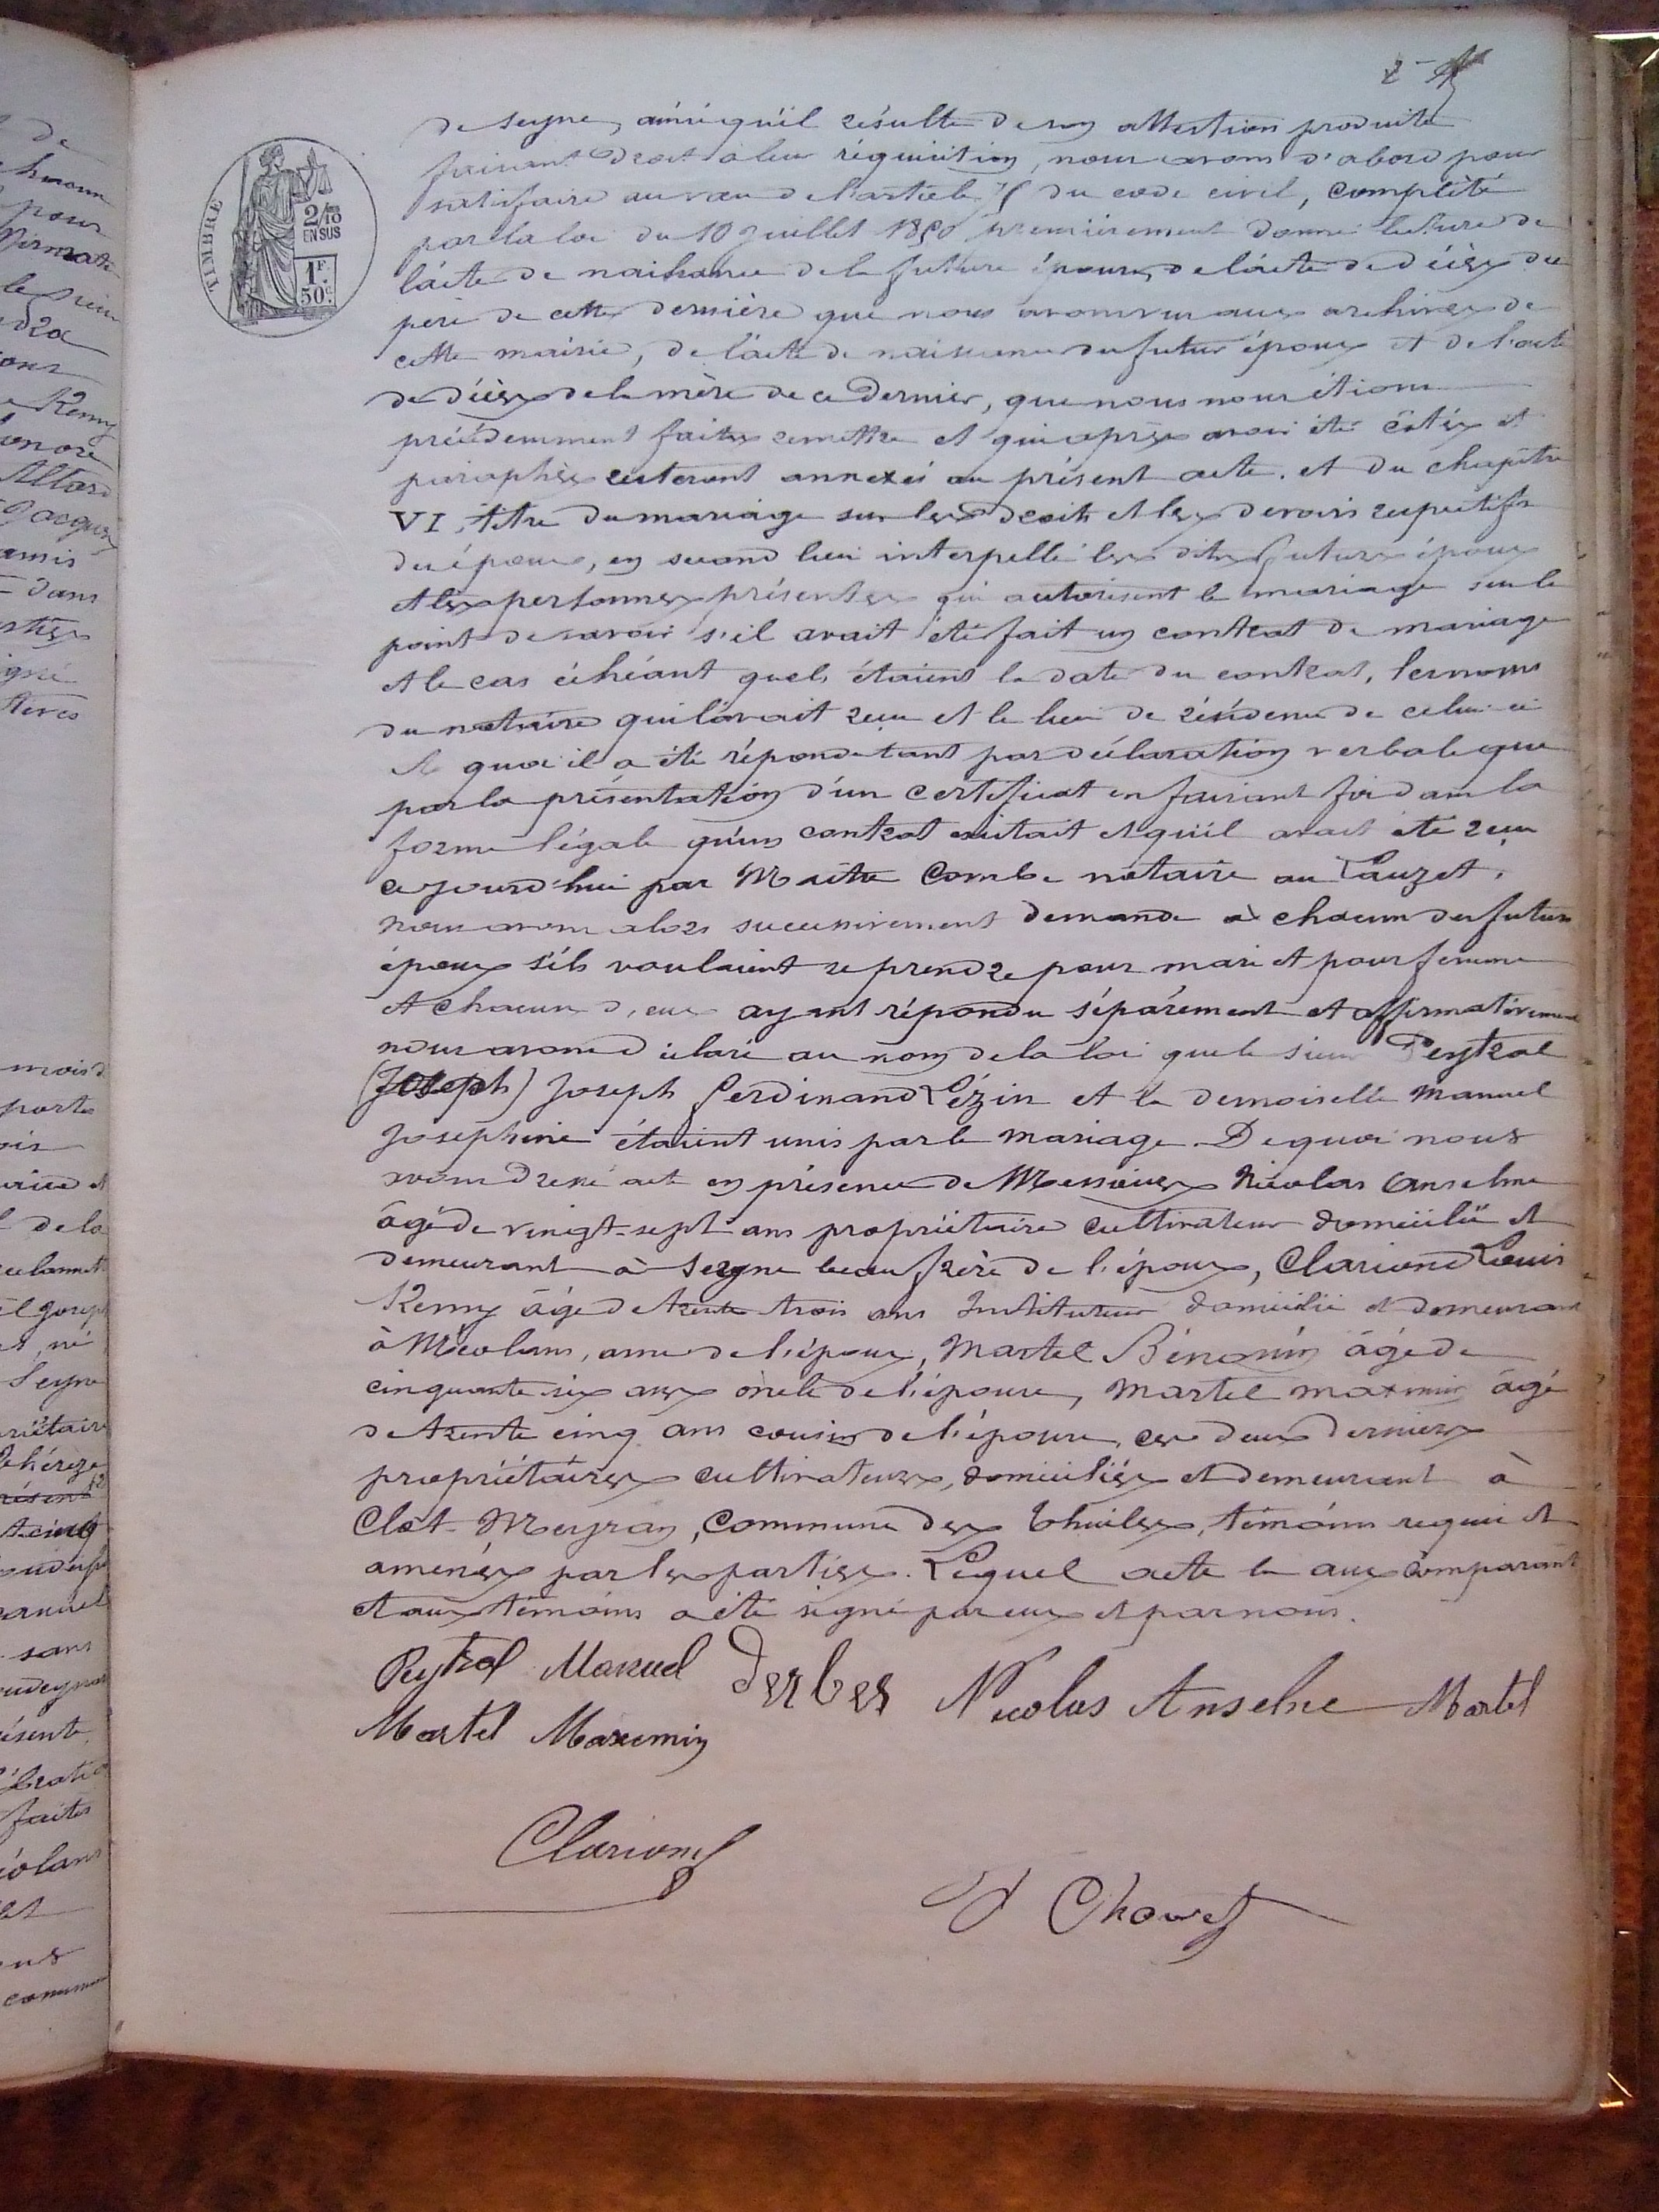 de Seyne, ainsi qu'il résulte de son attestion produite
faisant droit à leur réquisition, nous avons d'abord pour
satisfaire au vœu de l'article 75 du code civil, complété
par la loi du 10 juillet 1850 premièrement donné lecture de
l'acte de naissance de la future épouse, de l'acte de décès du
père de cette dernière que nous avons vu aux archives de
cette mairie, de l'acte de naissance du futur époux et de l'acte
de décès de la mère de ce dernier, que nous nous étions
précédemment faits remettre et qui après avoir été côtés et
paraphés resteront annexés au présent acte. et du chapitre
VI, titre du mariage sur les droits et les devoirs respectifs
des époux, en second lieu interpellé les dits futurs époux
et les personnes présentes qui autorisent le mariage sur le
point de savoir s'il avait été fait un contrat de mariage
et le cas échéant quels étaient la date du contrat, les noms
du notaire qui l'avait reçu et le lieu de résidence de celui-ci
A quoi il a été répondu tant par déclaration verbale que
par la présentation d'un certificat en faisant foi dans la
forme légale qu'un contrat existait et qu'il avait été reçu
cejourd'hui par Maître Combe notaire au Lauzet.
nous avons alors successivement demandé à chacun des futurs
époux s'ils voulaient se prendre pour mari et pour femme
et chacun d'eux ayant répondu séparément et affirmativement
nous avons déclaré au nom de la loi que le sieur Peytral
(Joseph) Joseph Ferdinand Lézin et la demoiselle Manuel
Josephine étaient unis par le mariage. De quoi nous
avons dressé acte en présence de Messieurs Nicolas Anselme
âgé de vingt-sept ans propriétaire cultivateur domicilié et
demeurant à Seyne beau frère de l'époux, Clariond Louis
Remy âgé de trente trois ans Instituteur domicilié et demeurant
à Méolans, ami de l'époux, Martel Bénonin âgé de
cinquante six ans oncle de l'épouse, Martel maxmin âgé
de trente cinq ans cousin de l'épouse, ces deux derniers
propriétaires cultivateurs, domiciliés et demeurant à
Clot-Meyran, commune des Thuiles, témoins requis et
amenés par les parties. Lequel acte lu aux comparant
et aux témoins a été signé par eux et par nous.
Peytral Manuel Derbes Nicolas Anselme Martel
Martel Maxemin
Clariond
Chauvet
TIMBRE
2/10
EN SUS
1F
50c